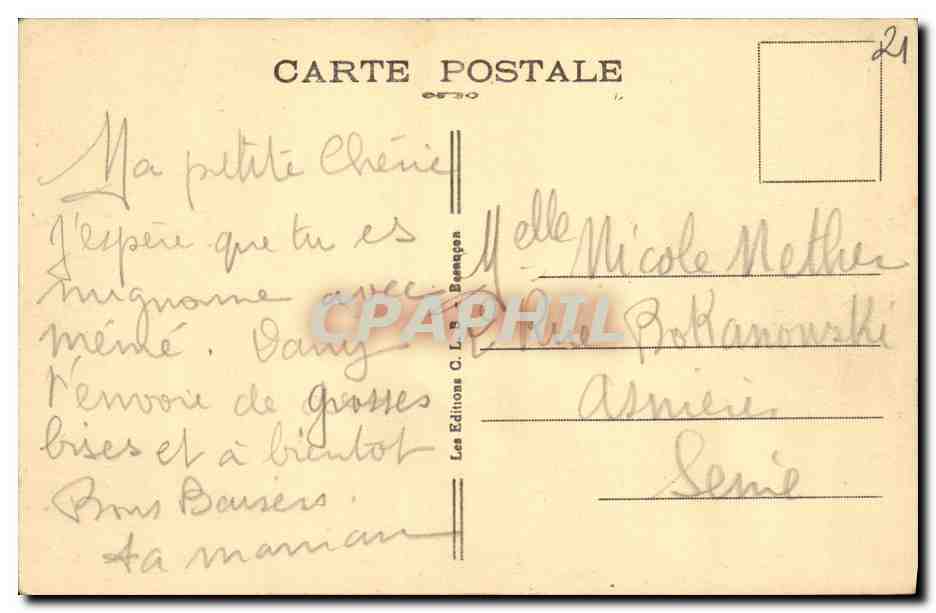 CARTE POSTALE
21
Ma petite Chérie
J'espère que tu es
mignonne avec
mémé. Dany
t'envoie de grosses
bises et à bientot
Bons Baisers.
ta maman
Les Editions C. L. B. - Besançon
Melle Nicole Nether
2 Rue Bokanowski
Asnières
Seine
CPAPHIL